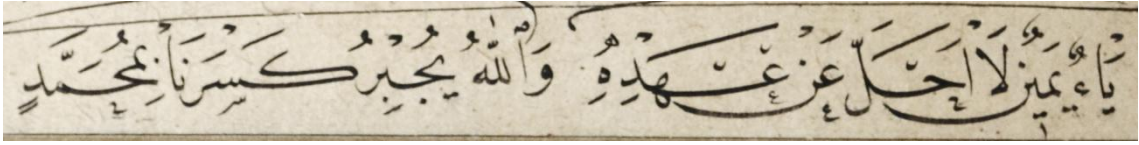 يَاءٌ يَمَيْنٌ لَا اَحَلَّ عَنْ عَهْدِهِ وَاللّٰهُ يُجْبِرُ كَسْرَنَا بِمُحَمَّدٍ